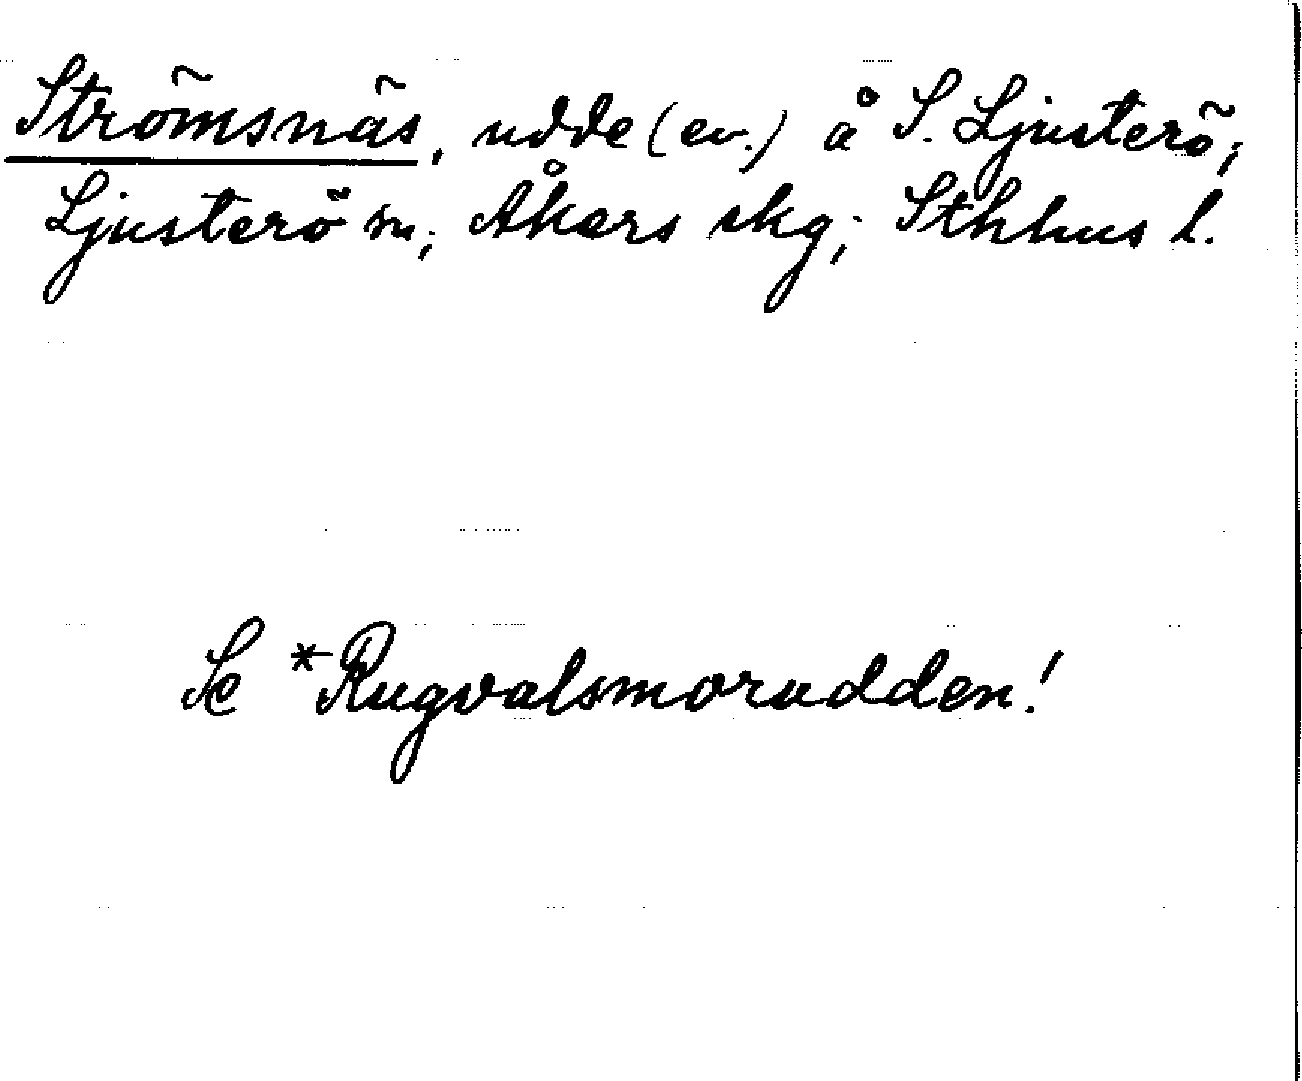 Strömsnäs, udde (ev.) å S. Ljusterö;
Ljusterö sn; Åkers skg; Sthlms l.
Se *Rugvalsmorudden!